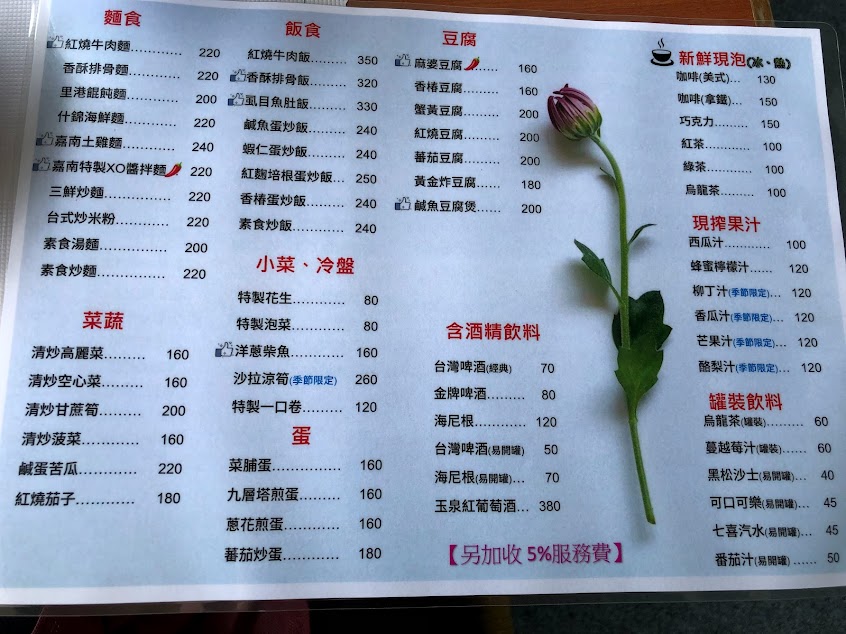 麵食
紅燒牛肉麵............ 220
香酥排骨麵............ 220
里港餛飩麵............ 200
什錦海鮮麵............ 220
嘉南土雞麵............ 240
嘉南特製XO醬拌麵 220
三鮮炒麵............ 220
台式炒米粉............ 220
素食湯麵............ 200
素食炒麵............ 220
菜蔬
清炒高麗菜......... 160
清炒空心菜......... 160
清炒甘蔗筍......... 200
清炒菠菜............ 160
鹹蛋苦瓜............ 220
紅燒茄子............ 180
飯食
紅燒牛肉飯......... 350
香酥排骨飯......... 320
虱目魚肚飯......... 330
鹹魚蛋炒飯......... 240
蝦仁蛋炒飯......... 240
紅麴培根蛋炒飯... 250
香椿蛋炒飯......... 240
素食炒飯............ 240
小菜、冷盤
特製花生............ 80
特製泡菜............ 80
洋蔥柴魚............ 160
沙拉涼筍(季節限定) 260
特製一口卷......... 120
蛋
菜脯蛋............... 160
九層塔煎蛋......... 160
蔥花煎蛋............ 160
蕃茄炒蛋............ 180
豆腐
麻婆豆腐 160
香椿豆腐............ 160
蟹黃豆腐............ 200
紅燒豆腐............ 200
蕃茄豆腐............ 200
黃金炸豆腐......... 180
鹹魚豆腐煲......... 200
含酒精飲料
台灣啤酒(經典) 70
金牌啤酒............ 80
海尼根............... 120
台灣啤酒(易開罐) 50
海尼根(易開罐)... 70
玉泉紅葡萄酒... 380
【另加收 5%服務費】
新鮮現泡(冰、熱)
咖啡(美式)... 130
咖啡(拿鐵)... 150
巧克力......... 150
紅茶............ 100
綠茶............ 100
烏龍茶......... 100
現搾果汁
西瓜汁............ 100
蜂蜜檸檬汁...... 120
柳丁汁(季節限定)... 120
香瓜汁(季節限定)... 120
芒果汁(季節限定)... 120
酪梨汁(季節限定)... 120
罐裝飲料
烏龍茶(罐裝)......... 60
蔓越莓汁(罐裝)...... 60
黑松沙士(易開罐)... 40
可口可樂(易開罐)... 45
七喜汽水(易開罐)... 45
番茄汁(易開罐)...... 50